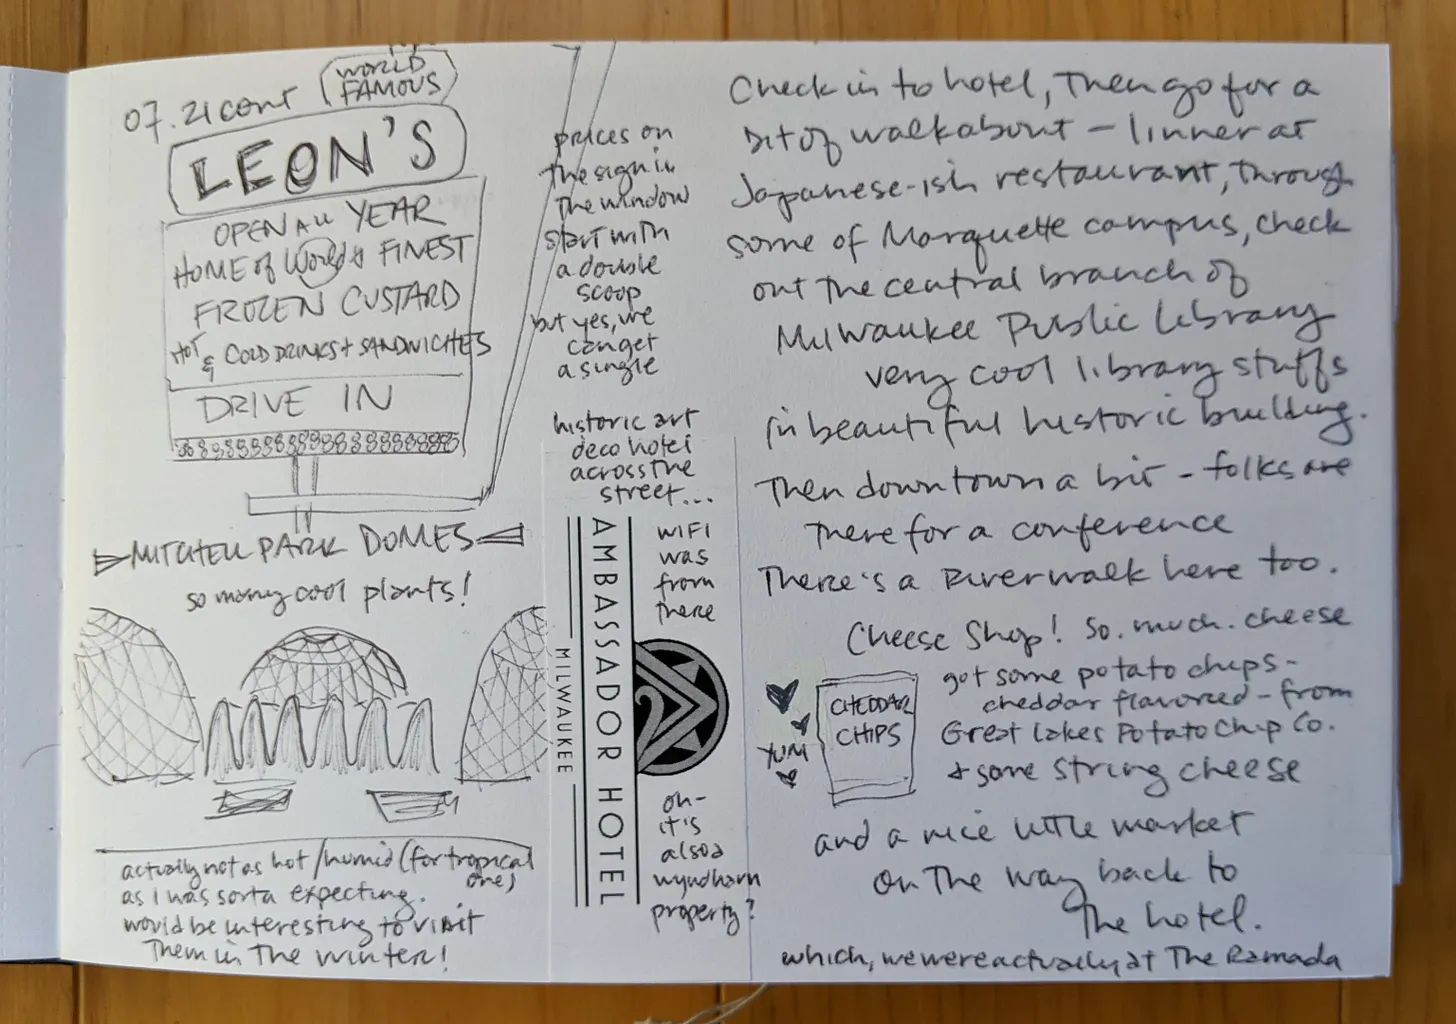 07.21 cont
WORLD
FAMOUS
LEON'S
OPEN ALL YEAR
HOME of World's FINEST
FROZEN CUSTARD
HOT & COLD DRINKS + SANDWICHES
DRIVE IN
MITCHELL PARK DOMES
so many cool plants!
actually not as hot/humid (for tropical
one)
as I was sorta expecting.
would be interesting to visit
them in the winter!
prices on
the sign in
the window
start with
a double
scoop
but yes, we
can get
a single
historic art
deco hotel
across the
street...
AMBASSADOR HOTEL
MILWAUKEE
WIFI
was
from
there
oh-
it's
also a
wyndham
property?
Check in to hotel, then go for a
bit of walkabout - linner at
Japanese-ish restaurant, through
some of Marquette campus, check
out the central branch of
Milwaukee Public Library
very cool library stuffs
in beautiful historic building.
Then downtown a bit - folks are
there for a conference
There's a Riverwalk here too.
Cheese Shop! So. much. cheese
got some potato chips -
cheddar flavored - from
Great Lakes Potato Chip Co.
+ some string cheese
CHEDDAR
CHIPS
YUM
and a nice little market
on the way back to
the hotel.
which, we were actually at The Ramada